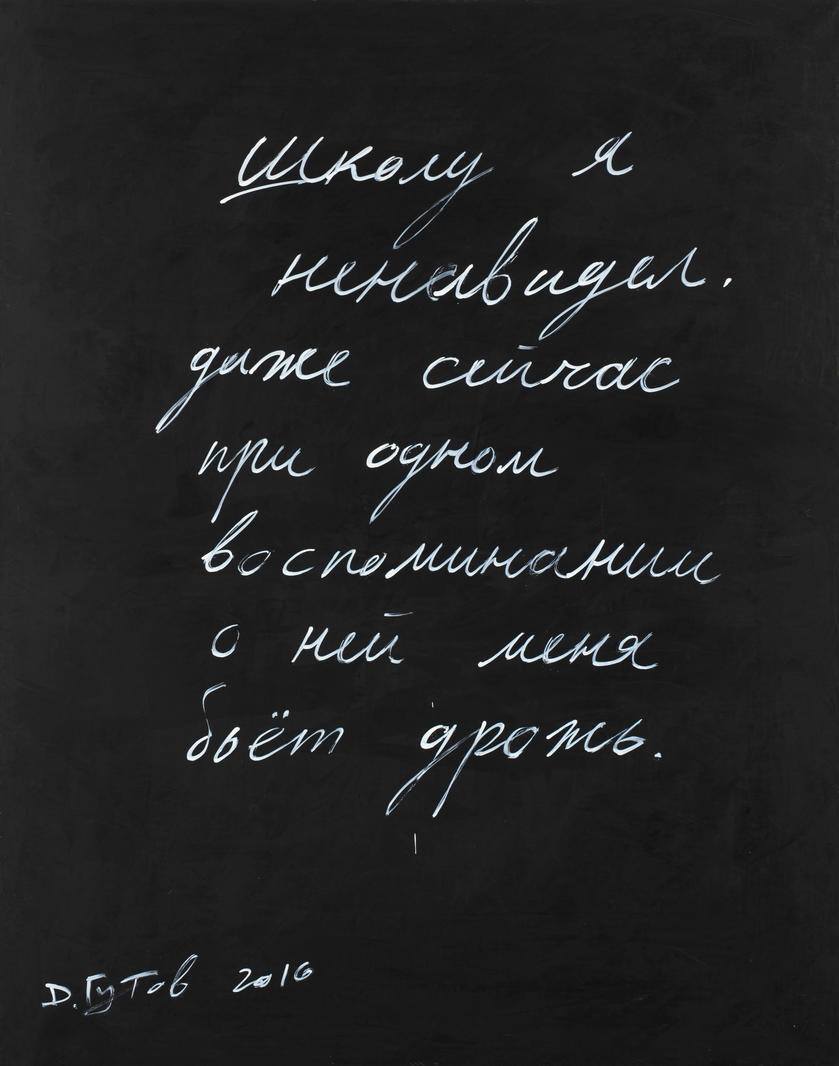 Школу я
ненавидел.
даже сейчас
при одном
воспоминании
о ней меня
бьёт дрожь.
Д. Гутов 2016